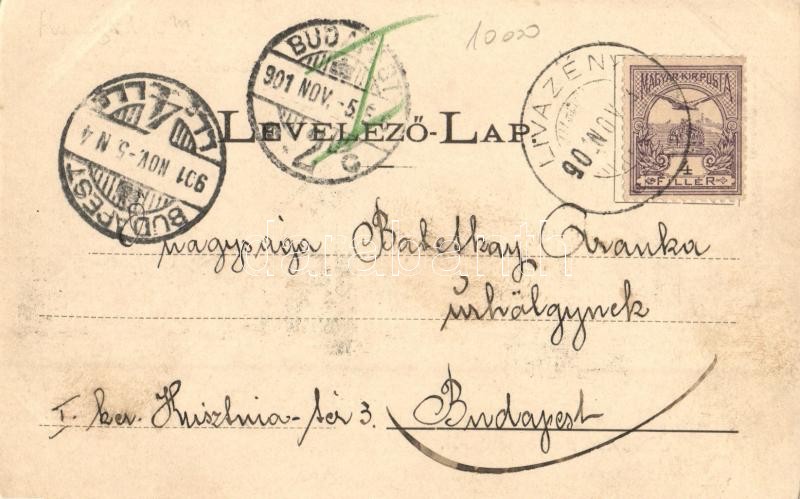 10000
BUDAPEST
901 NOV.-5.
BUDAPEST
901 NOV-5. N 4
LIVAZÉNY
901 NOV.
MAGYAR·KIR·POSTA
4
FILLÉR
LEVELEZŐ-LAP
nagysága Babetkay Aranka
úrhölgynek
I. ker. Krisztina-tér 3. Budapest
darabanth